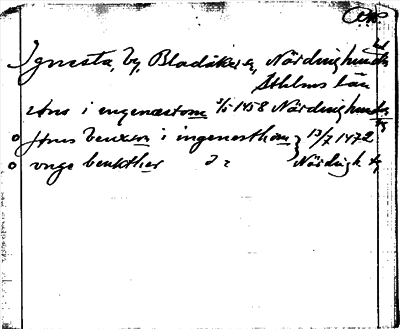 Ignesta, by, Bladåkers sn, Närdinghundra
Sthlms län
Ans i engenæstom 5/5 1458 Närdinghundra
Hans benxson i ingenesthom } 13/7 1472
unge benkther d:o Närdingh